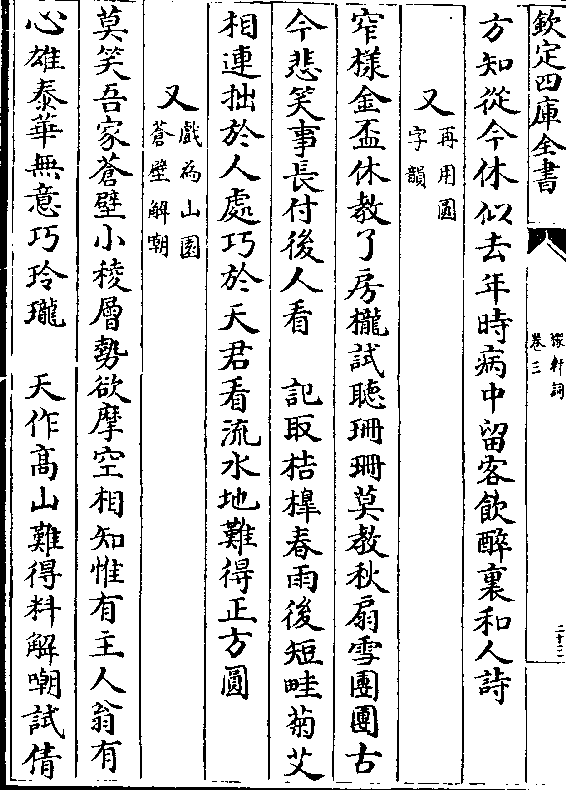 欽定四庫全書
稼軒詞
卷三
二十二
方知從今休似去年時病中留客飲醉裏和人詩
又
再用圓
字韻
窄樣金盃休教了房櫳試聽珊珊莫教秋扇雪團團古
今悲笑事長付後人看　記取桔槹春雨後短畦菊艾
相連拙於人處巧於天君看流水地難得正方圓
又
戲為山園
蒼壁解嘲
莫笑吾家蒼壁小稜層勢欲摩空相知惟有主人翁有
心雄泰華無意巧玲瓏　天作髙山難得料解嘲試倩